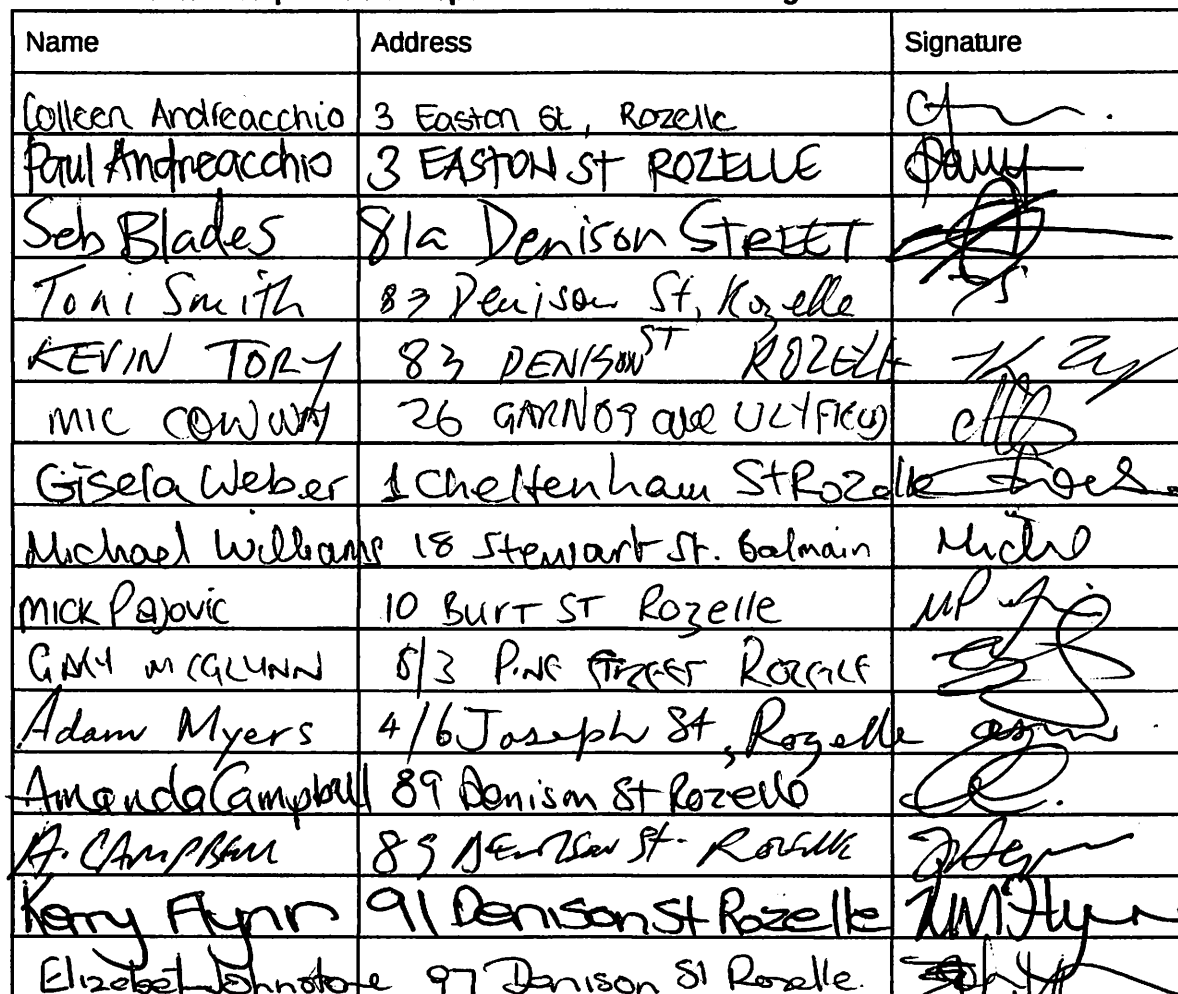 Name Address Signature
Colleen Andreacchio 3 Easton St, Rozelle
Paul Andreacchio 3 EASTON St ROZELLE
Seb Blades 81a Denison STREET
Toni Smith 83 Denison St, Rozelle
KEVIN TORY 83 DENISON ST ROZELLE
MIC CONWAY 26
Gisela Weber 1 Cheltenham St Rozelle
Michael Williams 18 Stewart St. Balmain
MICK Pajovic 10 BURT ST Rozelle MP
MCGLYNN 8/3 PINE STREET ROZELLE
Adam Myers 4/6 Joseph St, Rozelle
Amanda Campbell 89 Denison St Rozelle
A. CAMPBELL 89 DENISON St. ROZELLE
Kerry Flynn 91 Denison St Rozelle
Elizabeth Johnstone 97 Denison St Rozelle.